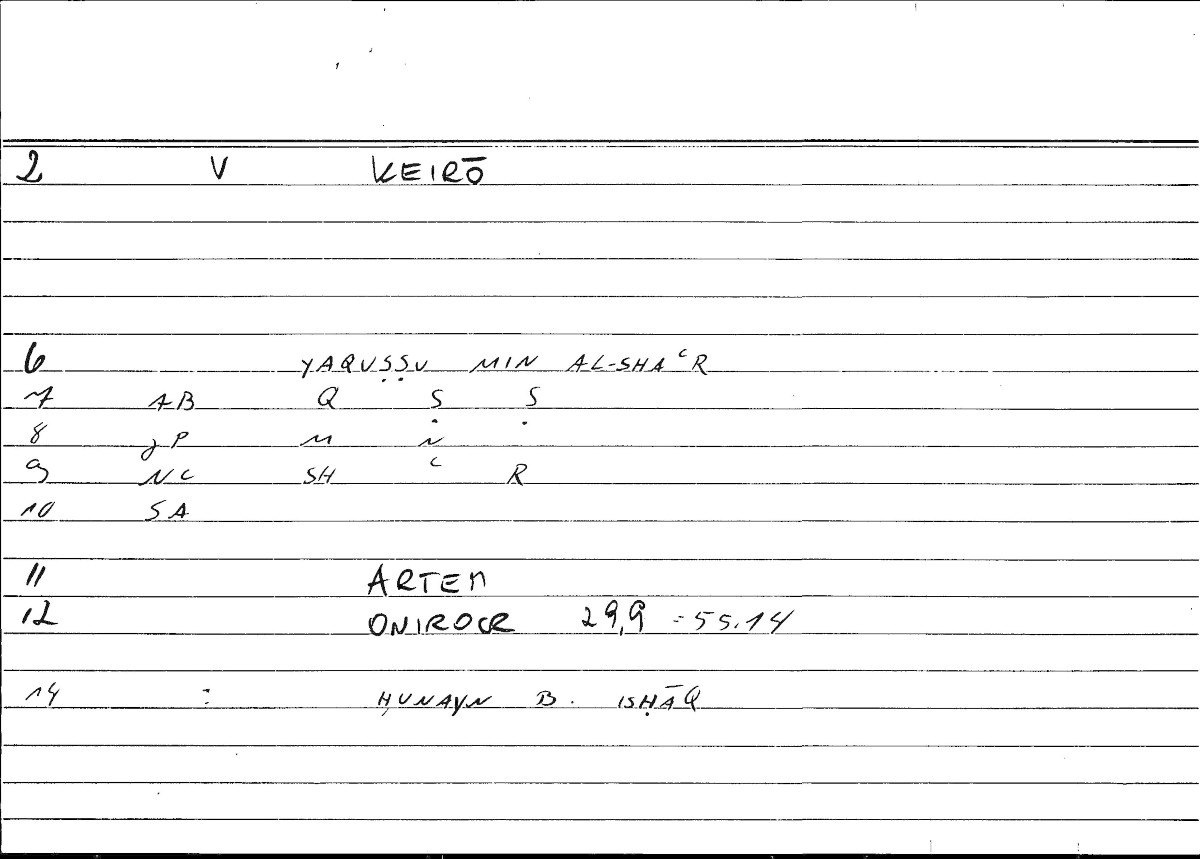 2 V KEIRŌ
6 YAQUṢṢU MIN AL-SHAʿR
7 AB Q Ṣ Ṣ
8 JP M N
9 NC SH ʿ R
10 SA
11 ARTEM
12 ONIROCR 29,9 = 55.14
14 : ḤUNAYN B. ISḤĀQ